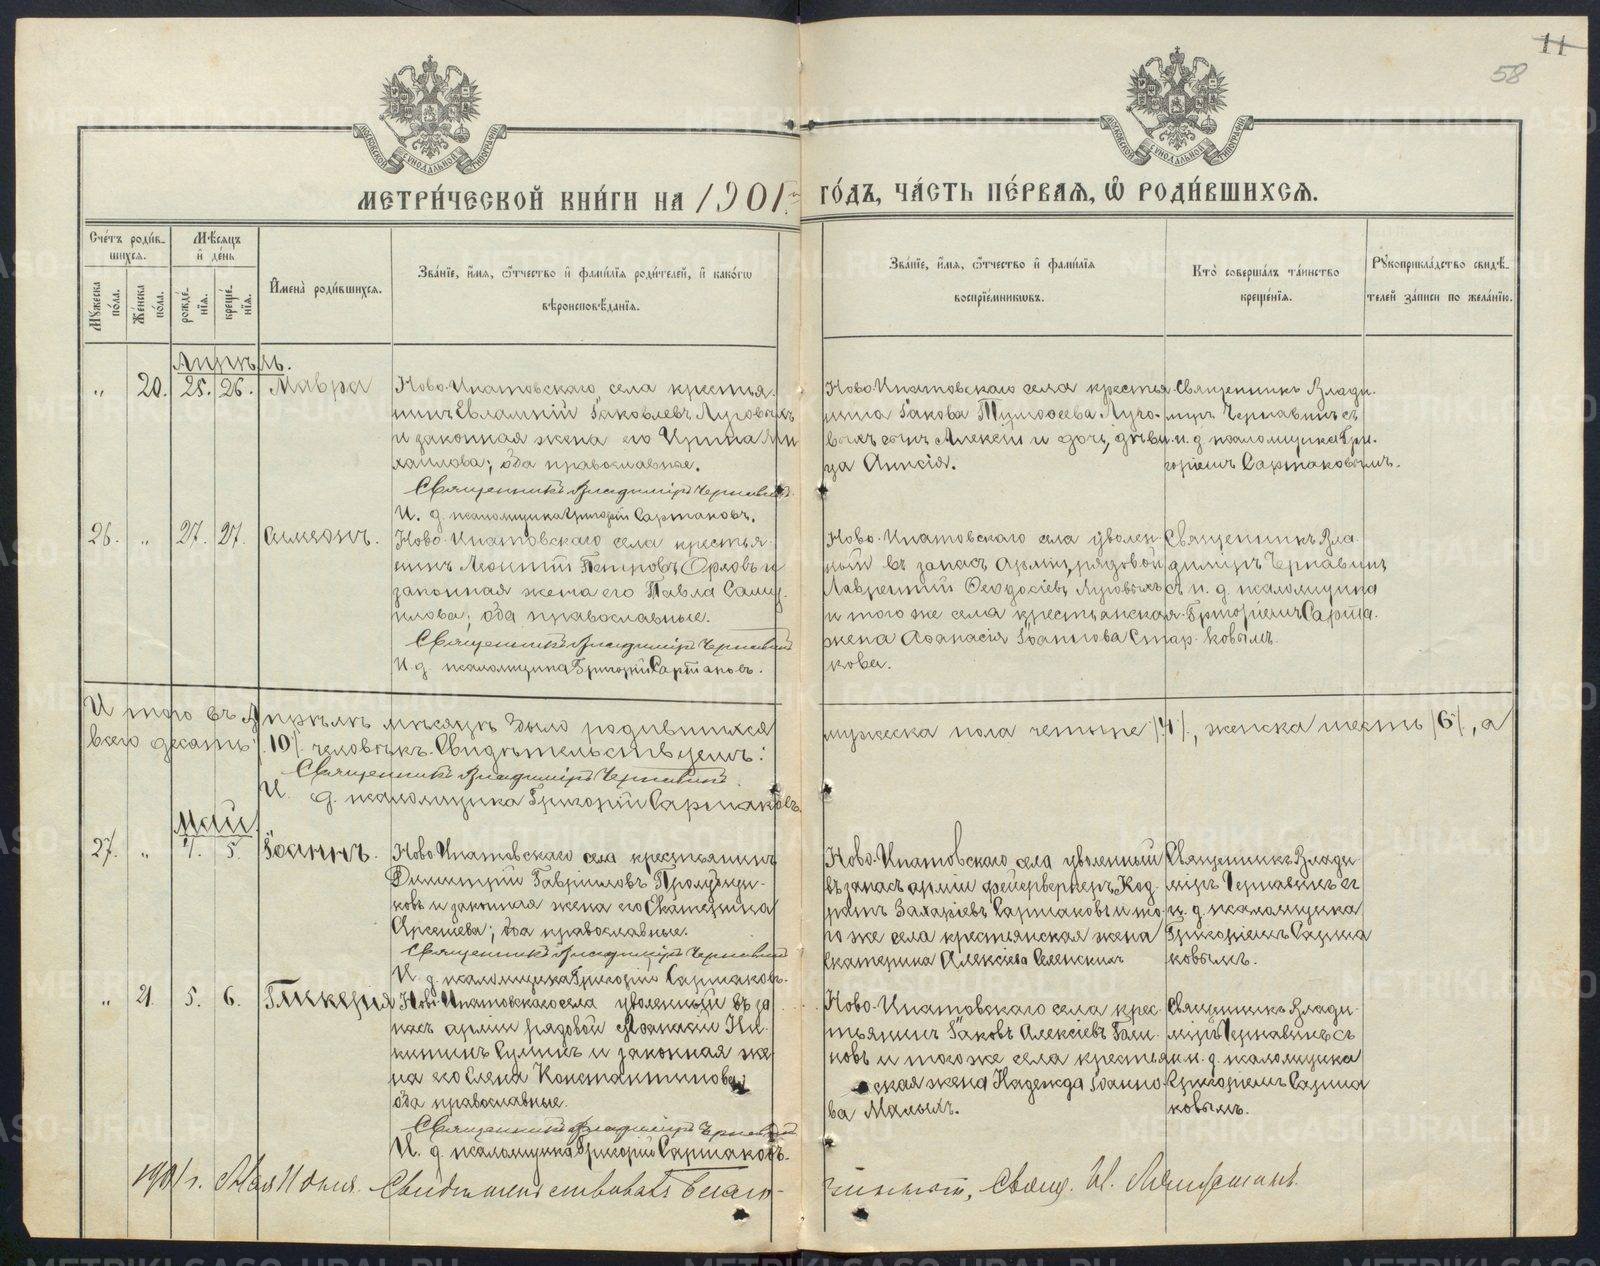 11
58
МОСКОВСКОЙ СУНОДАЛЬНОЙ ТИПОГРАФІИ
МОСКОВСКОЙ СУНОДАЛЬНОЙ ТИПОГРАФІИ
МЕТРИ́ЧЕСКОЙ КНИ́ГИ НА 1901 ГО́ДЪ, ЧА́СТЬ ПЕ́РВАѦ, Ѡ РОДИ́ВШИХСѦ.
Сче́тъ роди́в-
шихсѧ.
Му́жеска по́ла.
Же́нска по́ла.
Мѣ́сѧцъ и де́нь
рожде́нїѧ.
креще́нїѧ.
Имена̀ роди́вшихсѧ.
Зва́нїе, и́мѧ, ѻ́тчество и фами́лїѧ роди́телей, и како́гѡ
вѣроисповѣ́данїѧ.
Зва́нїе, и́мѧ, ѻ́тчество и фами́лїѧ
воспрїе́мникѡвъ.
Кто̀ соверша́лъ та́инство
креще́нїѧ.
Рꙋкоприкла́дство свидѣ́-
телей за́писи по жела́нїю.
Апрѣль.
„ 20. 25. 26. Мавра
Ново-Ипатовскаго села крестья-
нинъ Евлампій Іаковлевъ Луговыхъ
и законная жена его Ирина Ми
хаилова; оба православные.
Священникъ Владиміръ Чернавинъ
И. д. псаломщика Григорій Сартаковъ.
Ново-Ипатовскаго села крестья-
нина Іакова Тимофеева Луго-
выхъ сынъ Алексій и дочь, дѣви-
ца Анисія.
Священникъ Влади-
міръ Чернавинъ съ
и. д. псаломщика Гри-
горіемъ Сартаковымъ.
26. „ 27. 27. Симеонъ.
Ново-Ипатовскаго села крестья-
нинъ Леонтій Петровъ Орловъ и
законная жена его Павла Саму-
илова; оба православные.
Священникъ Владиміръ Чернавинъ
И. д. псаломщика Григорій Сартаковъ.
Ново-Ипатовскаго села уволен-
ный въ запасъ арміи, рядовой
Лаврентій Ѳеодосіевъ Луговыхъ
и того же села крестьянская
жена Аѳанасія Іоаннова Стар-
кова.
Священникъ Вла-
диміръ Чернавинъ
съ и. д. псаломщика
Григоріемъ Сарта-
ковымъ.
Итого въ Апрѣлѣ мѣсяцѣ было родившихся мужеска пола четыре /4/, женска шесть /6/, а
всего десять /10/ человѣкъ. Свидѣтельствуемъ:
Священникъ Владиміръ Чернавинъ
И. д. псаломщика Григорій Сартаковъ
Май
27. „ 4. 5. Іоаннъ.
Ново-Ипатовскаго села крестьянинъ
Димитрій Гавріиловъ
и законная жена его Екатерина
Арсеніева; оба православные.
Священникъ Владиміръ Чернавинъ
И. д. псаломщика Григорій Сартаковъ.
Ново-Ипатовскаго села уволенный
въ запасъ арміи фейерверкеръ Код-
ратъ Захаріевъ Сартаковъ и то-
го же села крестьянская жена
Екатерина Алексіева
Священникъ Влади-
міръ Чернавинъ съ
и. д. псаломщика
Григоріемъ Сарта
ковымъ.
„ 21. 5. 6. Гликерія
Ново-Ипатовскаго села уволенный въ за
пасъ арміи рядовой Аѳанасій Ни-
китинъ и законная же
на его Елена Константинова;
оба православные.
Священникъ Владиміръ Чернавинъ
И. д. псаломщика Григорій Сартаковъ.
Ново-Ипатовскаго села крес-
тьянинъ Іаковъ Алексіевъ
и того же села крестьян-
ская жена Надежда Іоанно-
ва Малыхъ.
Священникъ Влади-
міръ Чернавинъ съ
и. д. псаломщика
Григоріемъ Сарта
ковымъ.
1901 г. Мая 11 дня. Свидѣтельствовалъ благо-
чинный, свящ.